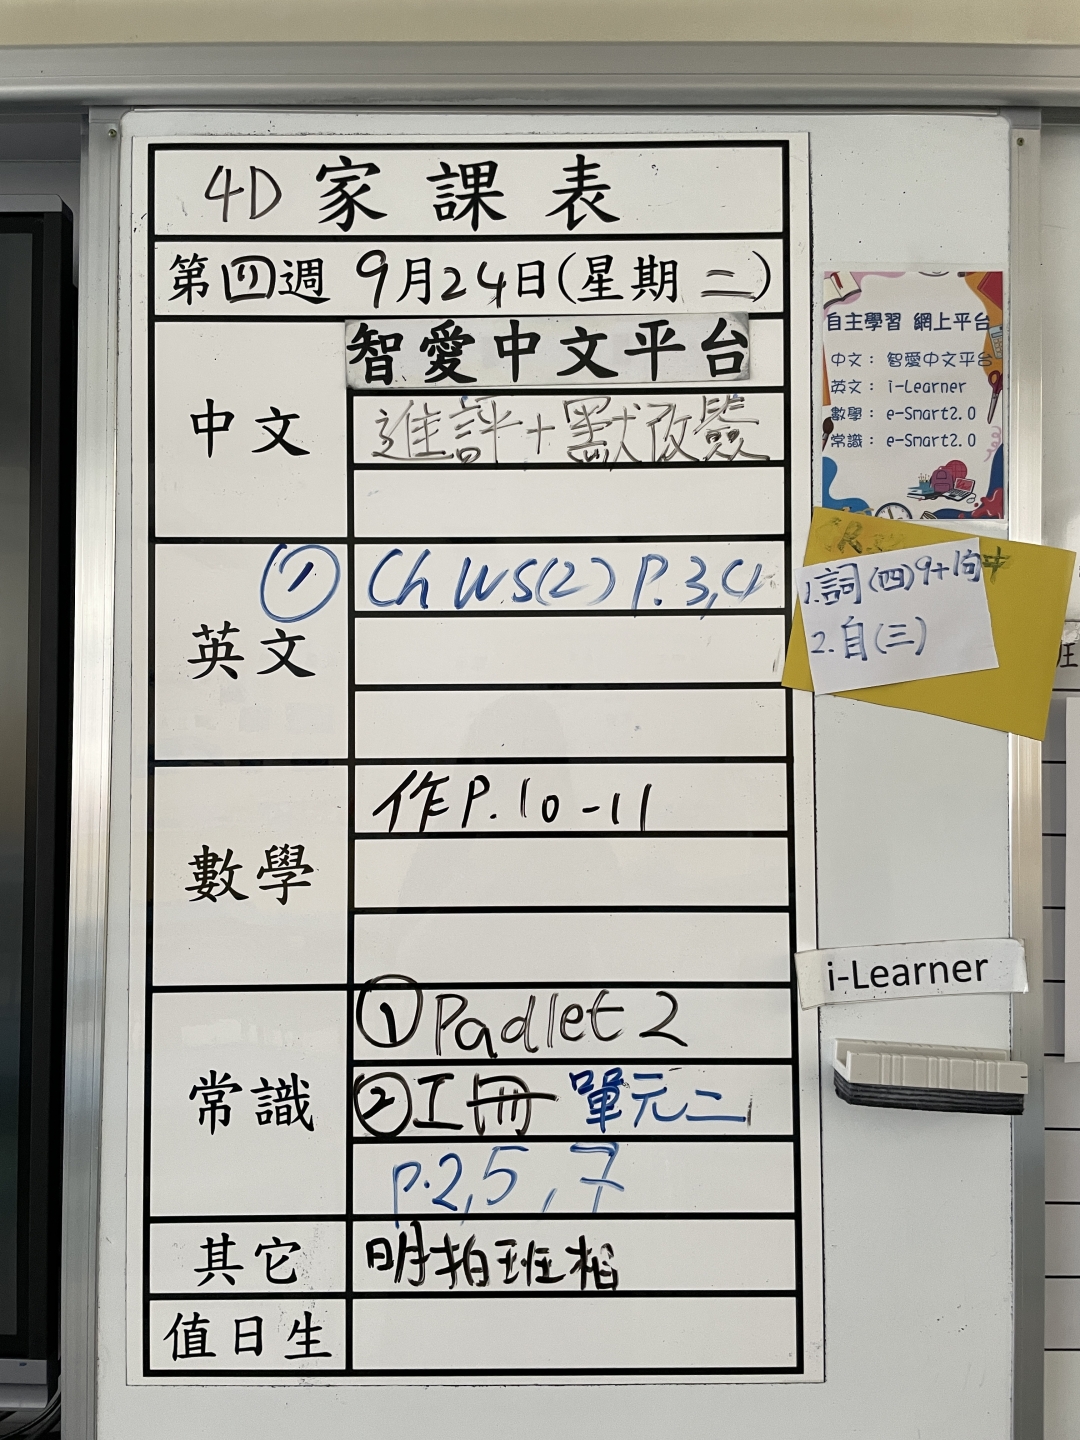 4D 家課表
第四週 9月24日(星期二)
中文
智愛中文平台
進評+默改簽
英文
① Ch WS(2) P.3,4
數學
作P.10-11
常識
①Padlet 2
②工冊 單元二
P.2,5,7
其它
明拍班相
值日生
自主學習 網上平台
中文: 智愛中文平台
英文: i-Learner
數學: e-Smart2.0
常識: e-Smart2.0
1.詞(四)9+10句
2.自(三)
i-Learner
班